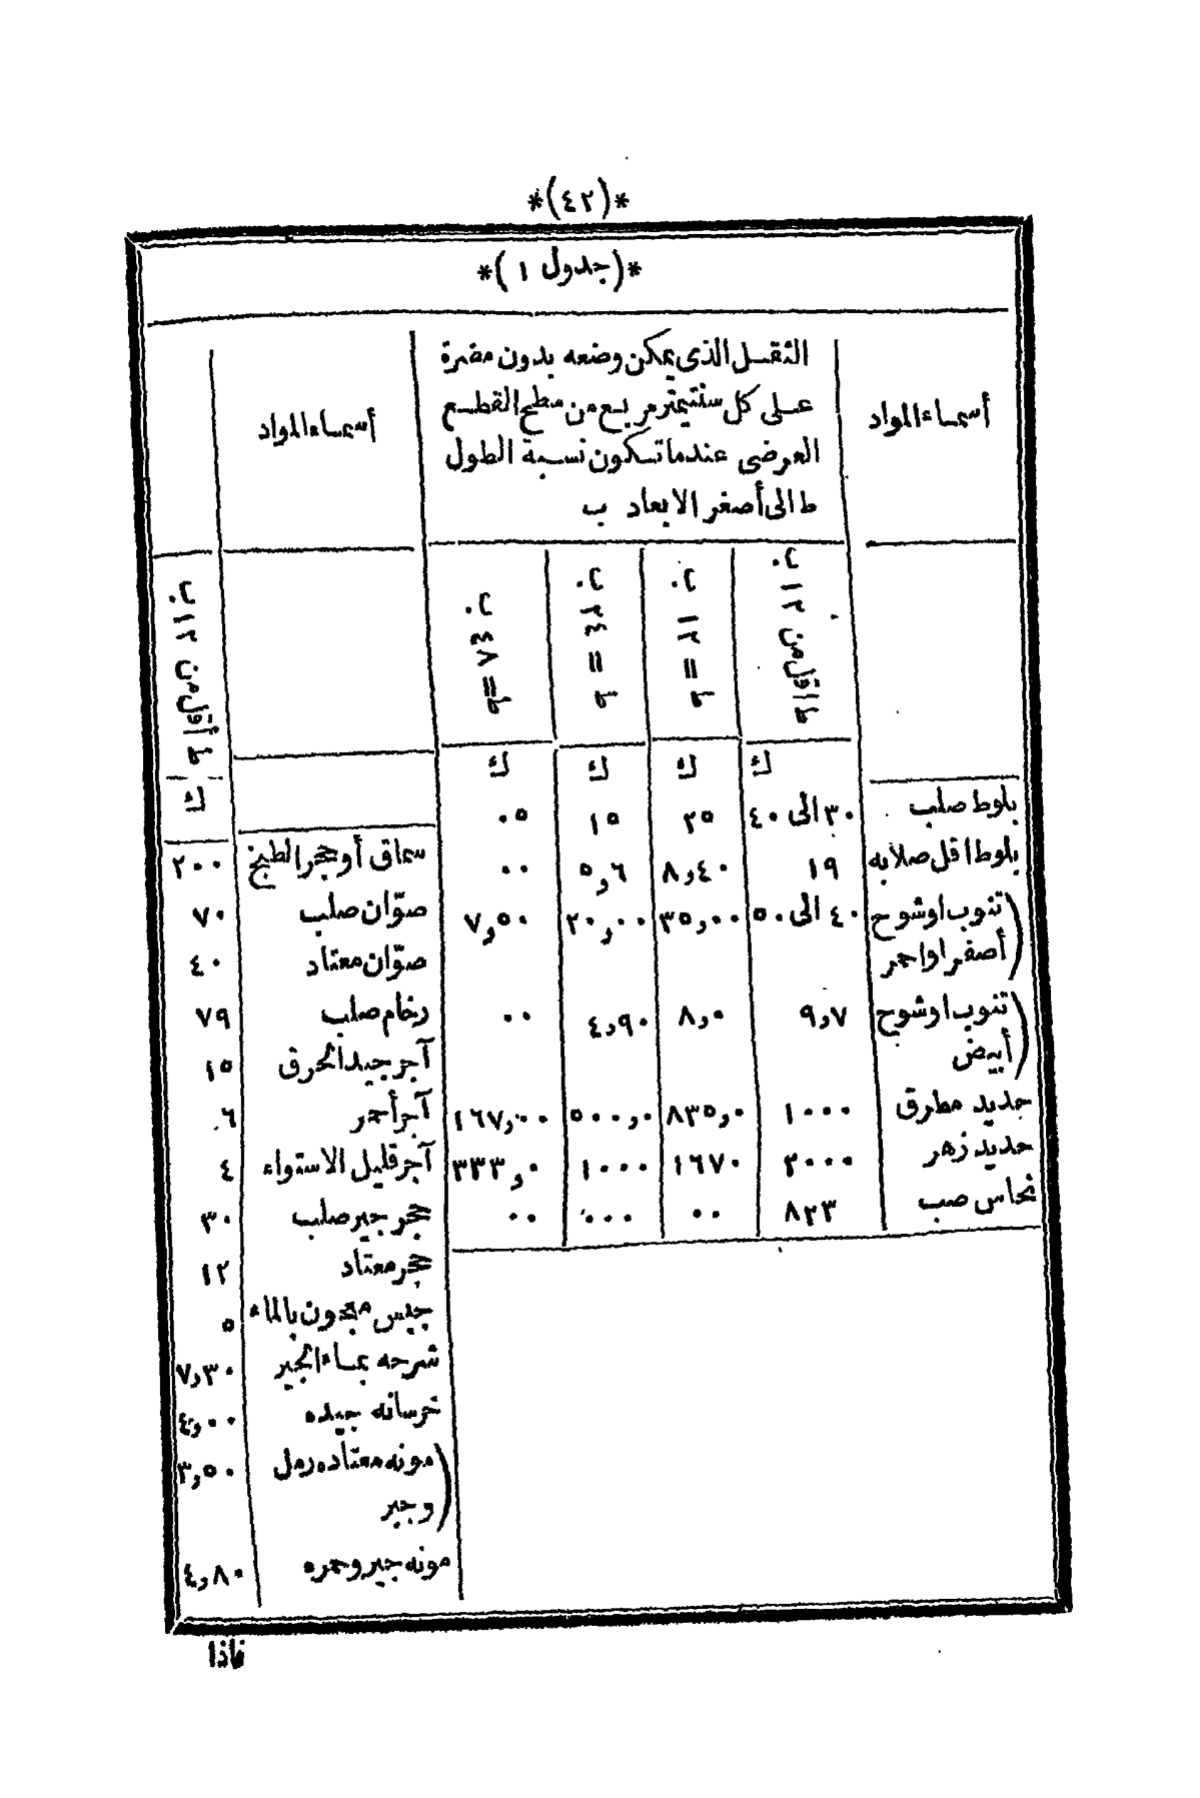 *(٤٢)*
*(جدول ١)*
أسماء المواد
الثقل الذى يمكن وضعه بدون مضرة
على كل سنتيمتر مربع من سطح القطع
العرضى عندما تكون نسبة الطول
ط الى أصغر الابعاد ب
أسماء المواد
ط اقل من ١٢ ب
ط = ١٢ ب
ط = ٢٤ ب
ط = ٤٨ ب
ط أقل من ١٢ ب
ك ك ك ك
ك
بلوط صلب ٣٠ الى ٤٠ ٢٥ ١٥ ٠٥
بلوط اقل صلابه ١٩ ٨,٤٠ ٥,٦ ٠٠
(تنوب اوشوح ٤٠ الى ٥٠ ٣٥,٠٠ ٢٠,٠٠ ٧,٥٠
أصفر او احمر
(تنوب اوشوح ٩,٧ ٨,٠ ٤,٩٠ ٠٠
أبيض
حديد مطرق ١٠٠٠ ٨٣٥,٠ ٥٠٠,٠ ١٦٧,٠٠
حديد زهر ٢٠٠٠ ١٦٧٠ ١٠٠٠ ٣٣٣,٠
نحاس صب ٨٢٣ ٠٠ ٠٠٠ ٠٠
سماق أو حجر الطبخ ٢٠٠
صوّان صلب ٧٠
صوّان معتاد ٤٠
رخام صلب ٧٩
آجر جيد الحرق ١٥
آجر أحمر ٦
آجر قليل الاستواء ٤
حجر جير صلب ٣٠
حجر معتاد ١٢
جبس معجون بالماء ٥
شرحه بماء الجير ٧,٣٠
خرسانه جيده ٤,٠٠
(مونه معتاده رمل ٣,٥٠
وجير
مونه جير وحمره ٤,٨٠
فاذا